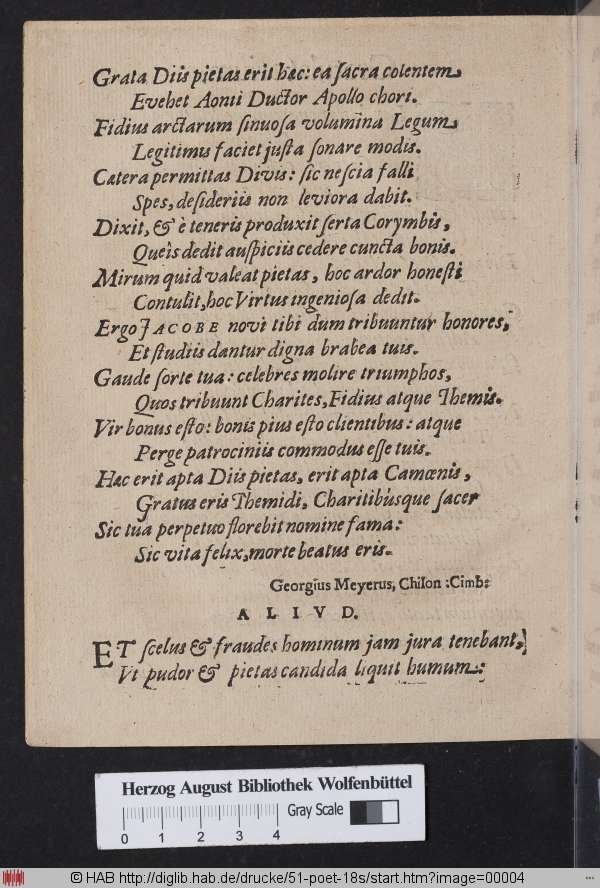 Grata Diis pietas erit hæc: ea sacra colentem
Evehet Aonii Ductor Apollo chori.
Fidius arctarum sinuosa volumina Legum
Legitimis faciet justa sonare modis.
Cætera permittas Divis: sic nescia falli
Spes, desideriis non leviora dabit.
Dixit, & è teneris produxit serta Corymbis,
Queis dedit auspiciis cedere cuncta bonis.
Mirum quid valeat pietas, hoc ardor honesti
Contulit, hoc Virtus ingeniosa dedit.
Ergo JACOBE novi tibi dum tribuuntur honores,
Et studiis dantur digna brabea tuis.
Gaude sorte tua: celebres molire triumphos,
Quos tribuunt Charites, Fidius atque Themis.
Vir bonus esto: bonis pius esto clientibus: atque
Perge patrociniis commodus esse tuis.
Hæc erit apta Diis pietas, erit apta Camœnis,
Gratus eris Themidi, Charitibusque sacer
Sic tua perpetuo florebit nomine fama:
Sic vita felix, morte beatus eris.
Georgius Meyerus, Chilon: Cimb:
ALIVD.
ET scelus & fraudes hominum jam jura tenebant,
Vt pudor & pietas candida liquit humum:
Herzog August Bibliothek Wolfenbüttel
Gray Scale
0 1 2 3 4
© HAB http://diglib.hab.de/drucke/51-poet-18s/start.htm?image=00004